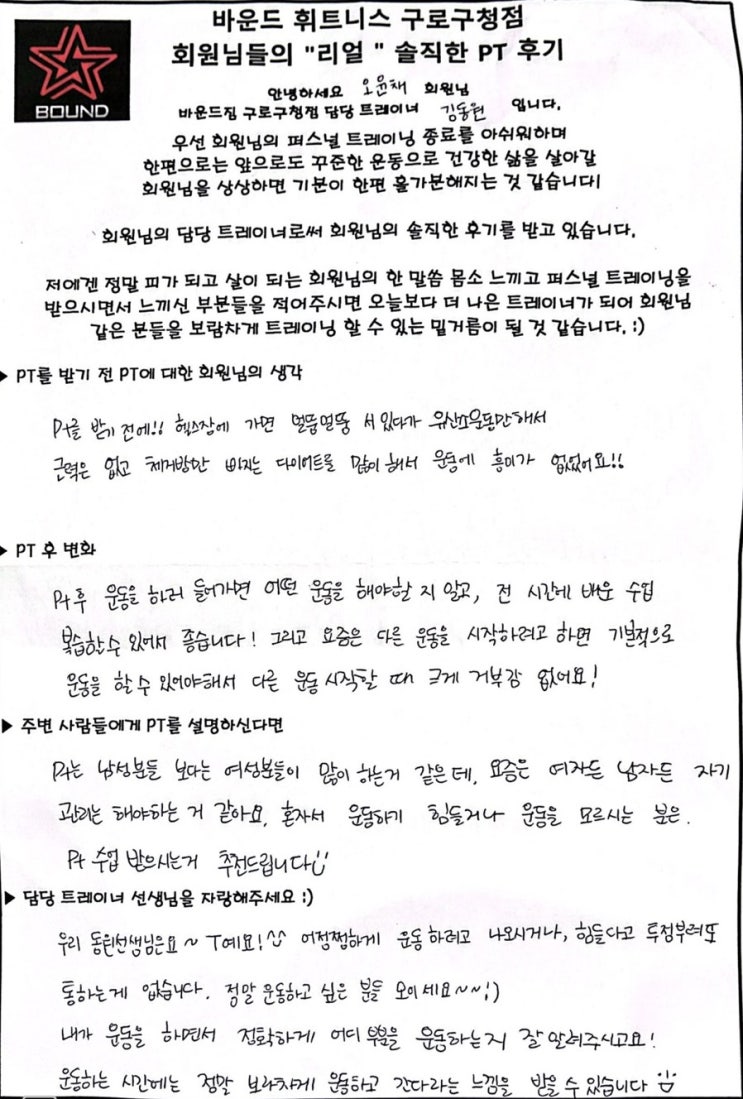 바운드 휘트니스 구로구청점
회원님들의 "리얼 " 솔직한 PT 후기
BOUND
안녕하세요 오윤채 회원님
바운드짐 구로구청점 담당 트레이너 김동원 입니다.
우선 회원님의 퍼스널 트레이닝 종료를 아쉬워하며
한편으로는 앞으로도 꾸준한 운동으로 건강한 삶을 살아갈
회원님을 상상하면 기분이 한편 홀가분해지는 것 같습니다!
회원님의 담당 트레이너로써 회원님의 솔직한 후기를 받고 있습니다.
저에겐 정말 피가 되고 살이 되는 회원님의 한 말씀 몸소 느끼고 퍼스널 트레이닝을
받으시면서 느끼신 부분들을 적어주시면 오늘보다 더 나은 트레이너가 되어 회원님
같은 분들을 보람차게 트레이닝 할 수 있는 밑거름이 될 것 같습니다. :)
▶ PT를 받기 전 PT에 대한 회원님의 생각
Pt를 받기 전에!! 헬스장에 가면 멀뚱멀뚱 서 있다가 유산소운동만해서
근력은 없고 체지방만 빠지는 다이어트를 많이 해서 운동에 흥미가 없었어요!!
▶ PT 후 변화
Pt 후 운동을 하러 들어가면 어떤 운동을 해야할 지 알고, 전 시간에 배운 수업
복습할 수 있어서 좋습니다! 그리고 요즘은 다른 운동을 시작하려고 하면 기본적으로
운동을 할 수 있어야해서 다른 운동 시작할 때 크게 거부감 없어요!
▶ 주변 사람들에게 PT를 설명하신다면
Pt는 남성분들 보다는 여성분들이 많이 하는거 같은데, 요즘은 여자든 남자든 자기
관리는 해야하는 거 같아요, 혼자서 운동하기 힘들거나 운동을 모르시는 분은.
Pt 수업 받으시는거 추천드립니다
▶ 담당 트레이너 선생님을 자랑해주세요 :)
우리 동원선생님은요~ T예요!^^ 어정쩡하게 운동하려고 나오시거나, 힘들다고 투정부려도
통하는게 없습니다. 정말 운동하고 싶은 분들 오이세요~~;)
내가 운동을 하면서 정확하게 어디 부분을 운동하는지 잘 알려주시고요!
운동하는 시간에는 정말 보람차게 운동하고 간다라는 느낌을 받을 수 있습니다